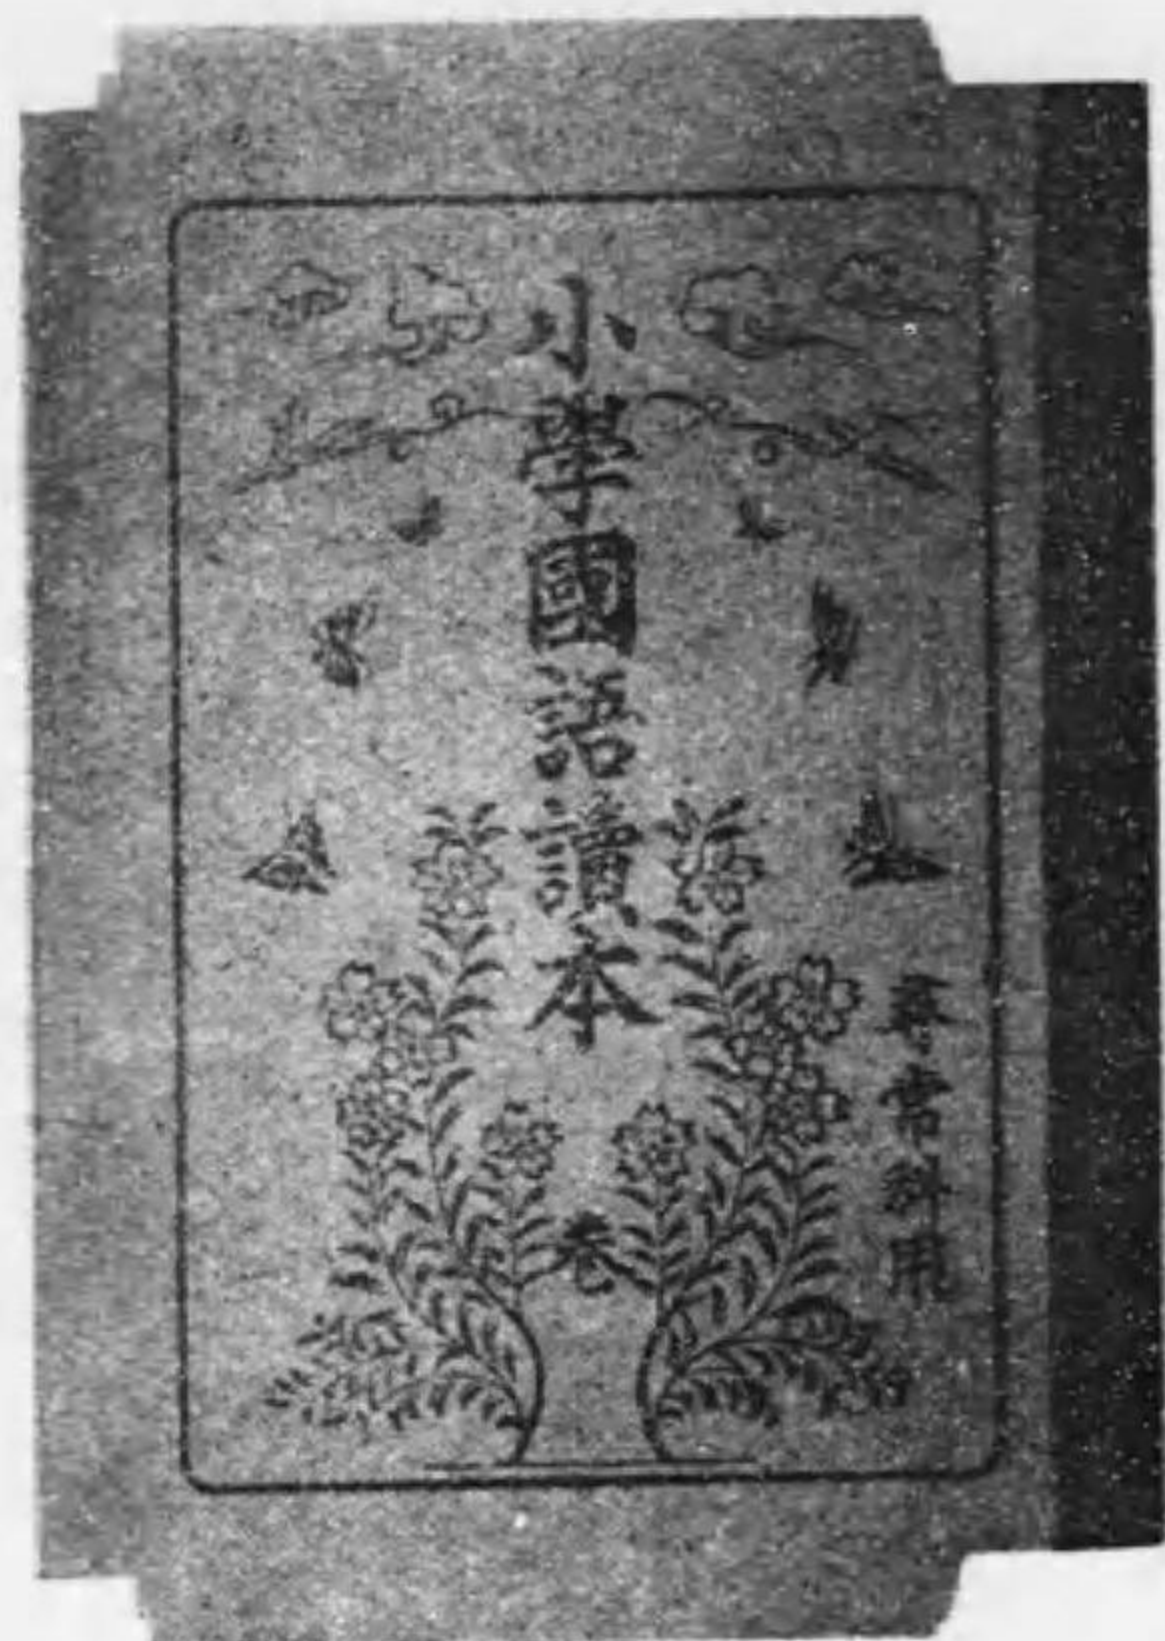 尋常科用
小學國語讀本
卷